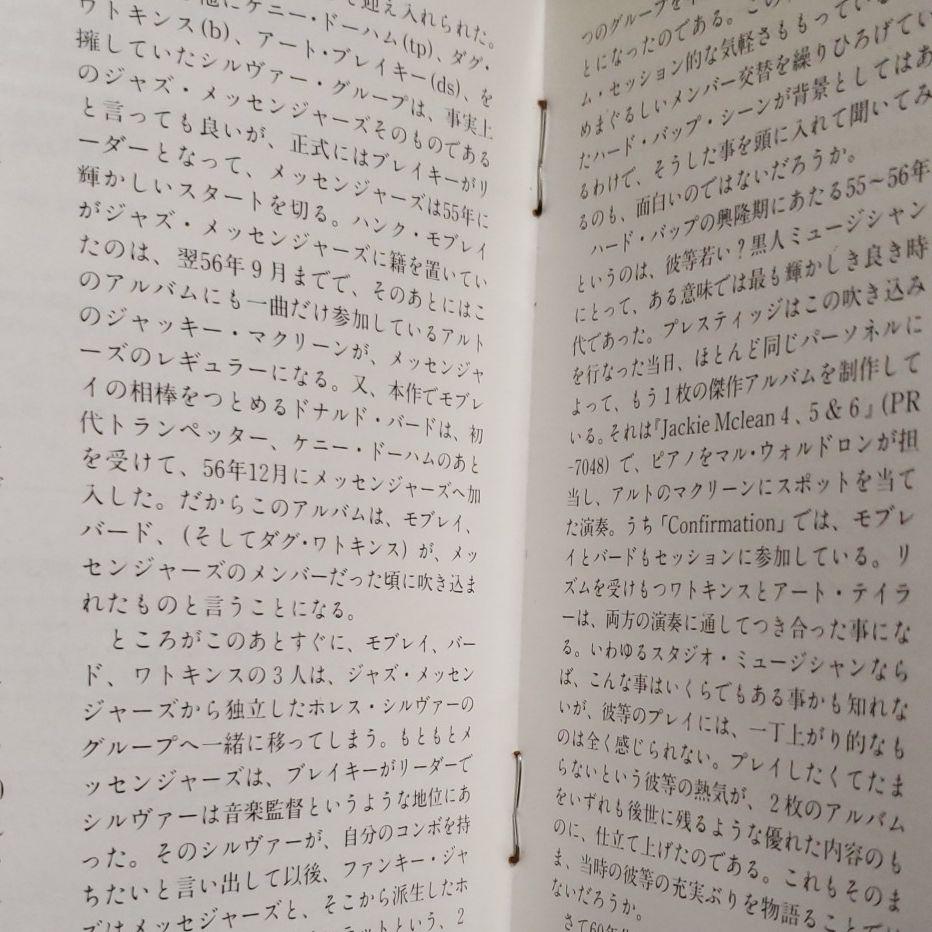 て迎え入れられた。
他にケニー・ドーハム(tp)、ダグ・
ワトキンス(b)、アート・ブレイキー(ds)、を
擁していたシルヴァー・グループは、事実上
のジャズ・メッセンジャーズそのものである
と言っても良いが、正式にはブレイキーがリ
ーダーとなって、メッセンジャーズは55年に
輝かしいスタートを切る。ハンク・モブレイ
がジャズ・メッセンジャーズに籍を置いてい
たのは、翌56年9月までで、そのあとにはこ
のアルバムにも一曲だけ参加しているアルト
のジャッキー・マクリーンが、メッセンジャ
ーズのレギュラーになる。又、本作でモブレ
イの相棒をつとめるドナルド・バードは、初
代トランペッター、ケニー・ドーハムのあと
を受けて、56年12月にメッセンジャーズへ加
入した。だからこのアルバムは、モブレイ、
バード、(そしてダグ・ワトキンス) が、メッ
センジャーズのメンバーだった頃に吹き込ま
れたものと言うことになる。
ところがこのあとすぐに、モブレイ、バー
ド、ワトキンスの3人は、ジャズ・メッセン
ジャーズから独立したホレス・シルヴァーの
グループへ一緒に移ってしまう。もともとメ
ッセンジャーズは、ブレイキーがリーダーで
シルヴァーは音楽監督というような地位にあ
った。そのシルヴァーが、自分のコンボを持
ちたいと言い出して以後、ファンキー・ジャ
ズはメッセジャーズと、そこから派生したホ
ットという、2
つのグループを
とになったのである。この
ム・セッション的な気軽さももっている
めまぐるしいメンバー交替を繰りひろげてい
たハード・バップ・シーンが背景としてはあ
るわけで、そうした事を頭に入れて聞いてみ
るのも、面白いのではないだろうか。
ハード・バップの興隆期にあたる55～56年
というのは、彼等若い?黒人ミュージシャン
にとって、ある意味では最も輝かしき良き時
代であった。プレスティッジはこの吹き込み
を行なった当日、ほとんど同じパーソネルに
よって、もう1枚の傑作アルバムを制作して
いる。それは『Jackie Mclean 4、5 & 6』(PR
-7048) で、ピアノをマル・ウォルドロンが担
当し、アルトのマクリーンにスポットを当て
た演奏。うち「Confirmation」では、モブレ
イとバードもセッションに参加している。リ
ズムを受けもつワトキンスとアート・テイラ
ーは、両方の演奏に通してつき合った事にな
る。いわゆるスタジオ・ミュージシャンなら
ば、こんな事はいくらでもある事かも知れな
いが、彼等のプレイには、一丁上がり的なも
のは全く感じられない。プレイしたくてたま
らないという彼等の熱気が、2枚のアルバム
をいずれも後世に残るような優れた内容のも
のに、仕立て上げたのである。これもそのま
ま、当時の彼等の充実ぶりを物語ることでは
ないだろうか。
さて60年